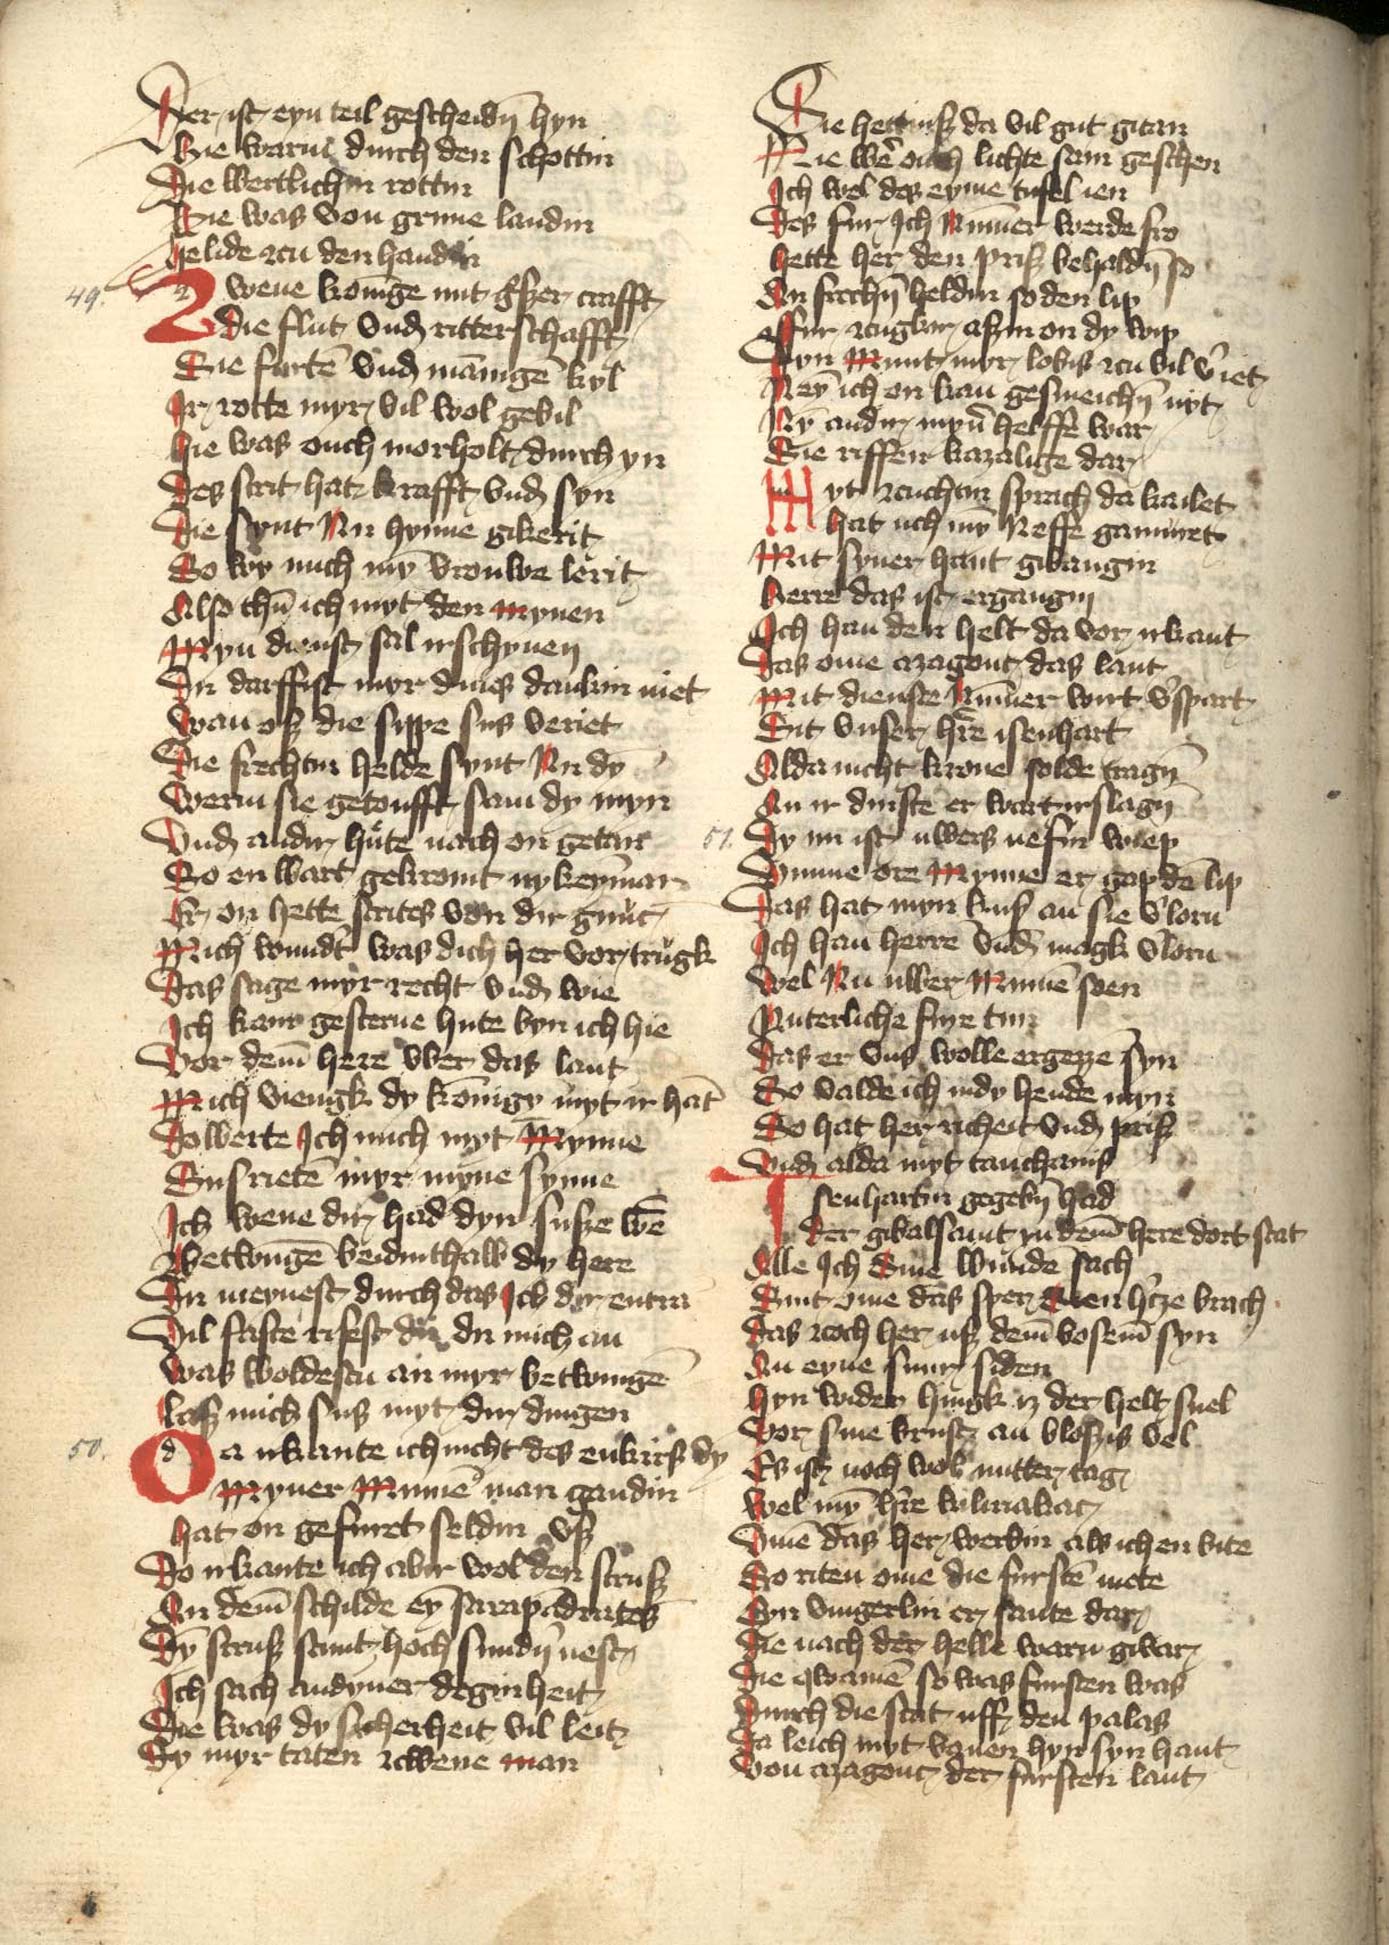 Der ist eyn teil gescheidn̄ hyn
Hie warın durch den schottin
Die wertlichin rottin
Hie was von grune landin
Helide zcu den handin
49.
Zwene konīge mit gᵒszer crafft
die flut vnd ritterschafft
Sie furtē vnd mānigē kyl
Ir rotte myr vil wol gevil
Hie was ouch morholt durch yn
Des strit hat krafft vnd syn
Die synt Nu hynne gikerit
So wy mich mȳ vrouwe lerit
Also thū ich myt den Mynen
Myn dienst sal irschynen
Du darffist myr dines dankin niet
Wan osz die sippe sus veriet
Die frechin helde synt Nu dȳ
Werın sie getoufft sam dy myn
Vnd andir hu̇te nach on getan
So en wart gekront ny keȳman
Er on hette strites von dir gnuc
Mich wundᵗ was dich her vor trugk
Das sage myr recht vnd wie
Ich kam gesterne hute byn ich hie
Vor dem̄ here vber das lant
Mich viengk dy kōnigȳ myt ir hāt
Do werte Ich mich myt Mynne
Sus rietē myr myne synne
Ich wene dir had dyn susze wē
Betwngē beidinthalb dy here
Du meynest durch das Ich dir entrā
Vil faste rifest du du mich an
Was woldestu an myr betwingē
Lasz mich sus myt dir dingen
50.
Da irkante ich nicht des enkirs dy
Myner Mumē man gandin
hat on gefurt seldin vsz
Do irkante ich abir wol den strusz
An dem̄ schilde eȳ sarapandrates
Dȳ strusz stunt hoch sundirnest
Ich sach andyner deginheit
Die was dy sicherheit vil leit
Dy myr taten zcwene man
Sie hettinsz da vil gut gitan
Mir wē ouch lichte sam geschen
Ich wel des eyme tufel ien
Des fur Ich Nummer werde fro
hette her den prisz behaldn̄ so
An frechn̄ heldin so den lip
Fur zcugker aszin on dy wip
Dyn Munt myr lobis zcu vil vᵉiet
Neȳ ich on kan gesmeichn̄ nyt
Nȳ andir mynr helffe war
Sie riffen kazalige dar
Myt zcuchtin sprach da kailet
hat uch mȳ Neffe gamuret
Mit syner hant gwangin
herre das ist ergangin
Ich han den helt da vor irkant
Das ome azagouc das lant
Mit dienste Nummer wirt vᵉspart
Sit vnser hᵉre isenhart
Alda nicht krone solde tragn̄
An ir dinste er wart irslagn̄
51.
Dy nu ist uwers nefin wiep
Vmme ore Mynne er gap dē lip
Das hat myn kusz an sie vᵉlorn
Ich han herre vnd magk vᵉlorn
Wel Nu uwer Mumē soen
Ritterliche fure tun
Das er vns wolle ergezze syn
So valde ich im dy hende myn
So hat her richeit vnd prisz
Vnd alda myt tanchanis
Isenhartin gegebn̄ had
der gwalsamt yn dem̄ here dort stat
Alle Ich Sine wundē sach
Sint ome das sper Sien hᵉcze brach
das zcoch her usz dem̄ bosem̄ syn
An eyne snur siden
Hyn wider hingk iz der helt snel
Vor sine brust an bloszis vel
Es ist noch wol mitter tag
Wel mȳ hᵉre kilirıakac
Vmē das her werbin als ich en bite
So riten ome die furstē mete
Eyn vingerlin er sante dar
Die nach der helle warn gwar
Die qwamē so was fursten was
Durch die stat uff den palas
Da leich myt vanen hyn syn hant
Von azagouc der fursten lant